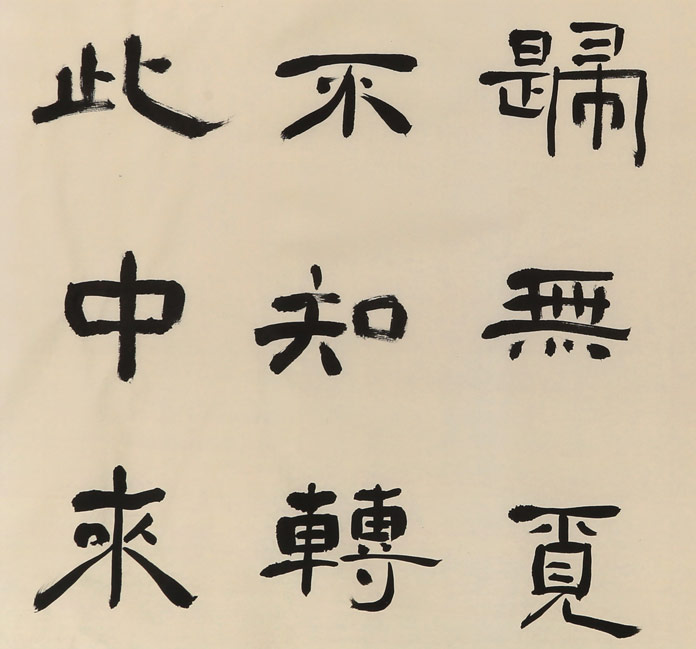 歸無覔
不知轉
此中來